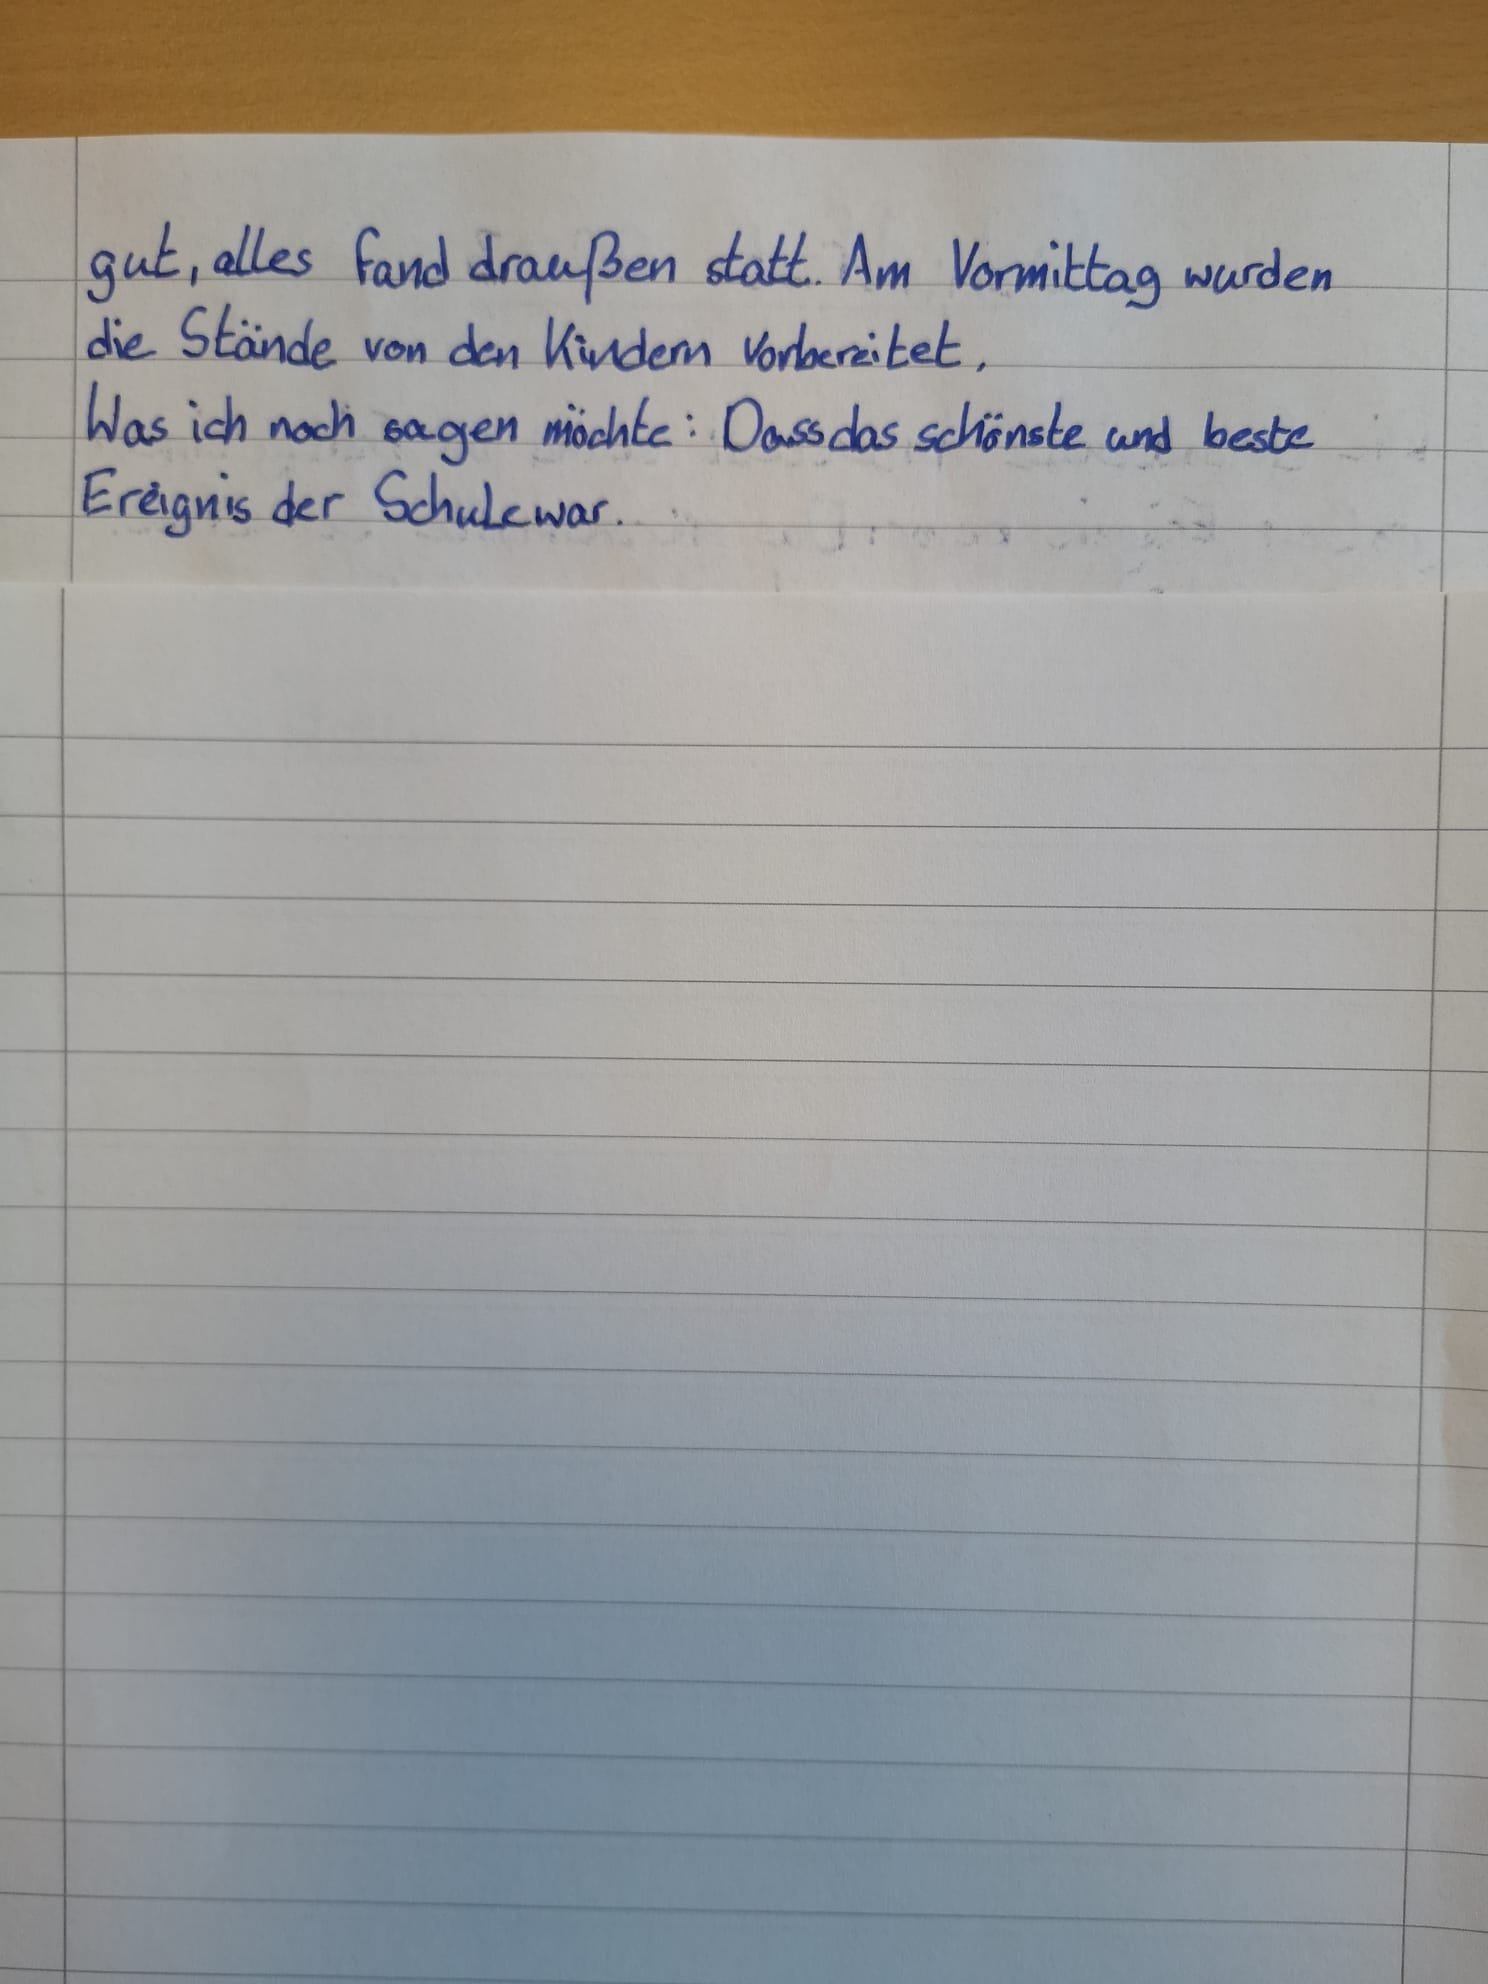 gut, alles fand draußen statt. Am Vormittag wurden
die Stände von den Kindern vorbereitet.
Was ich noch sagen möchte: Dass das schönste und beste
Ereignis der Schule war.